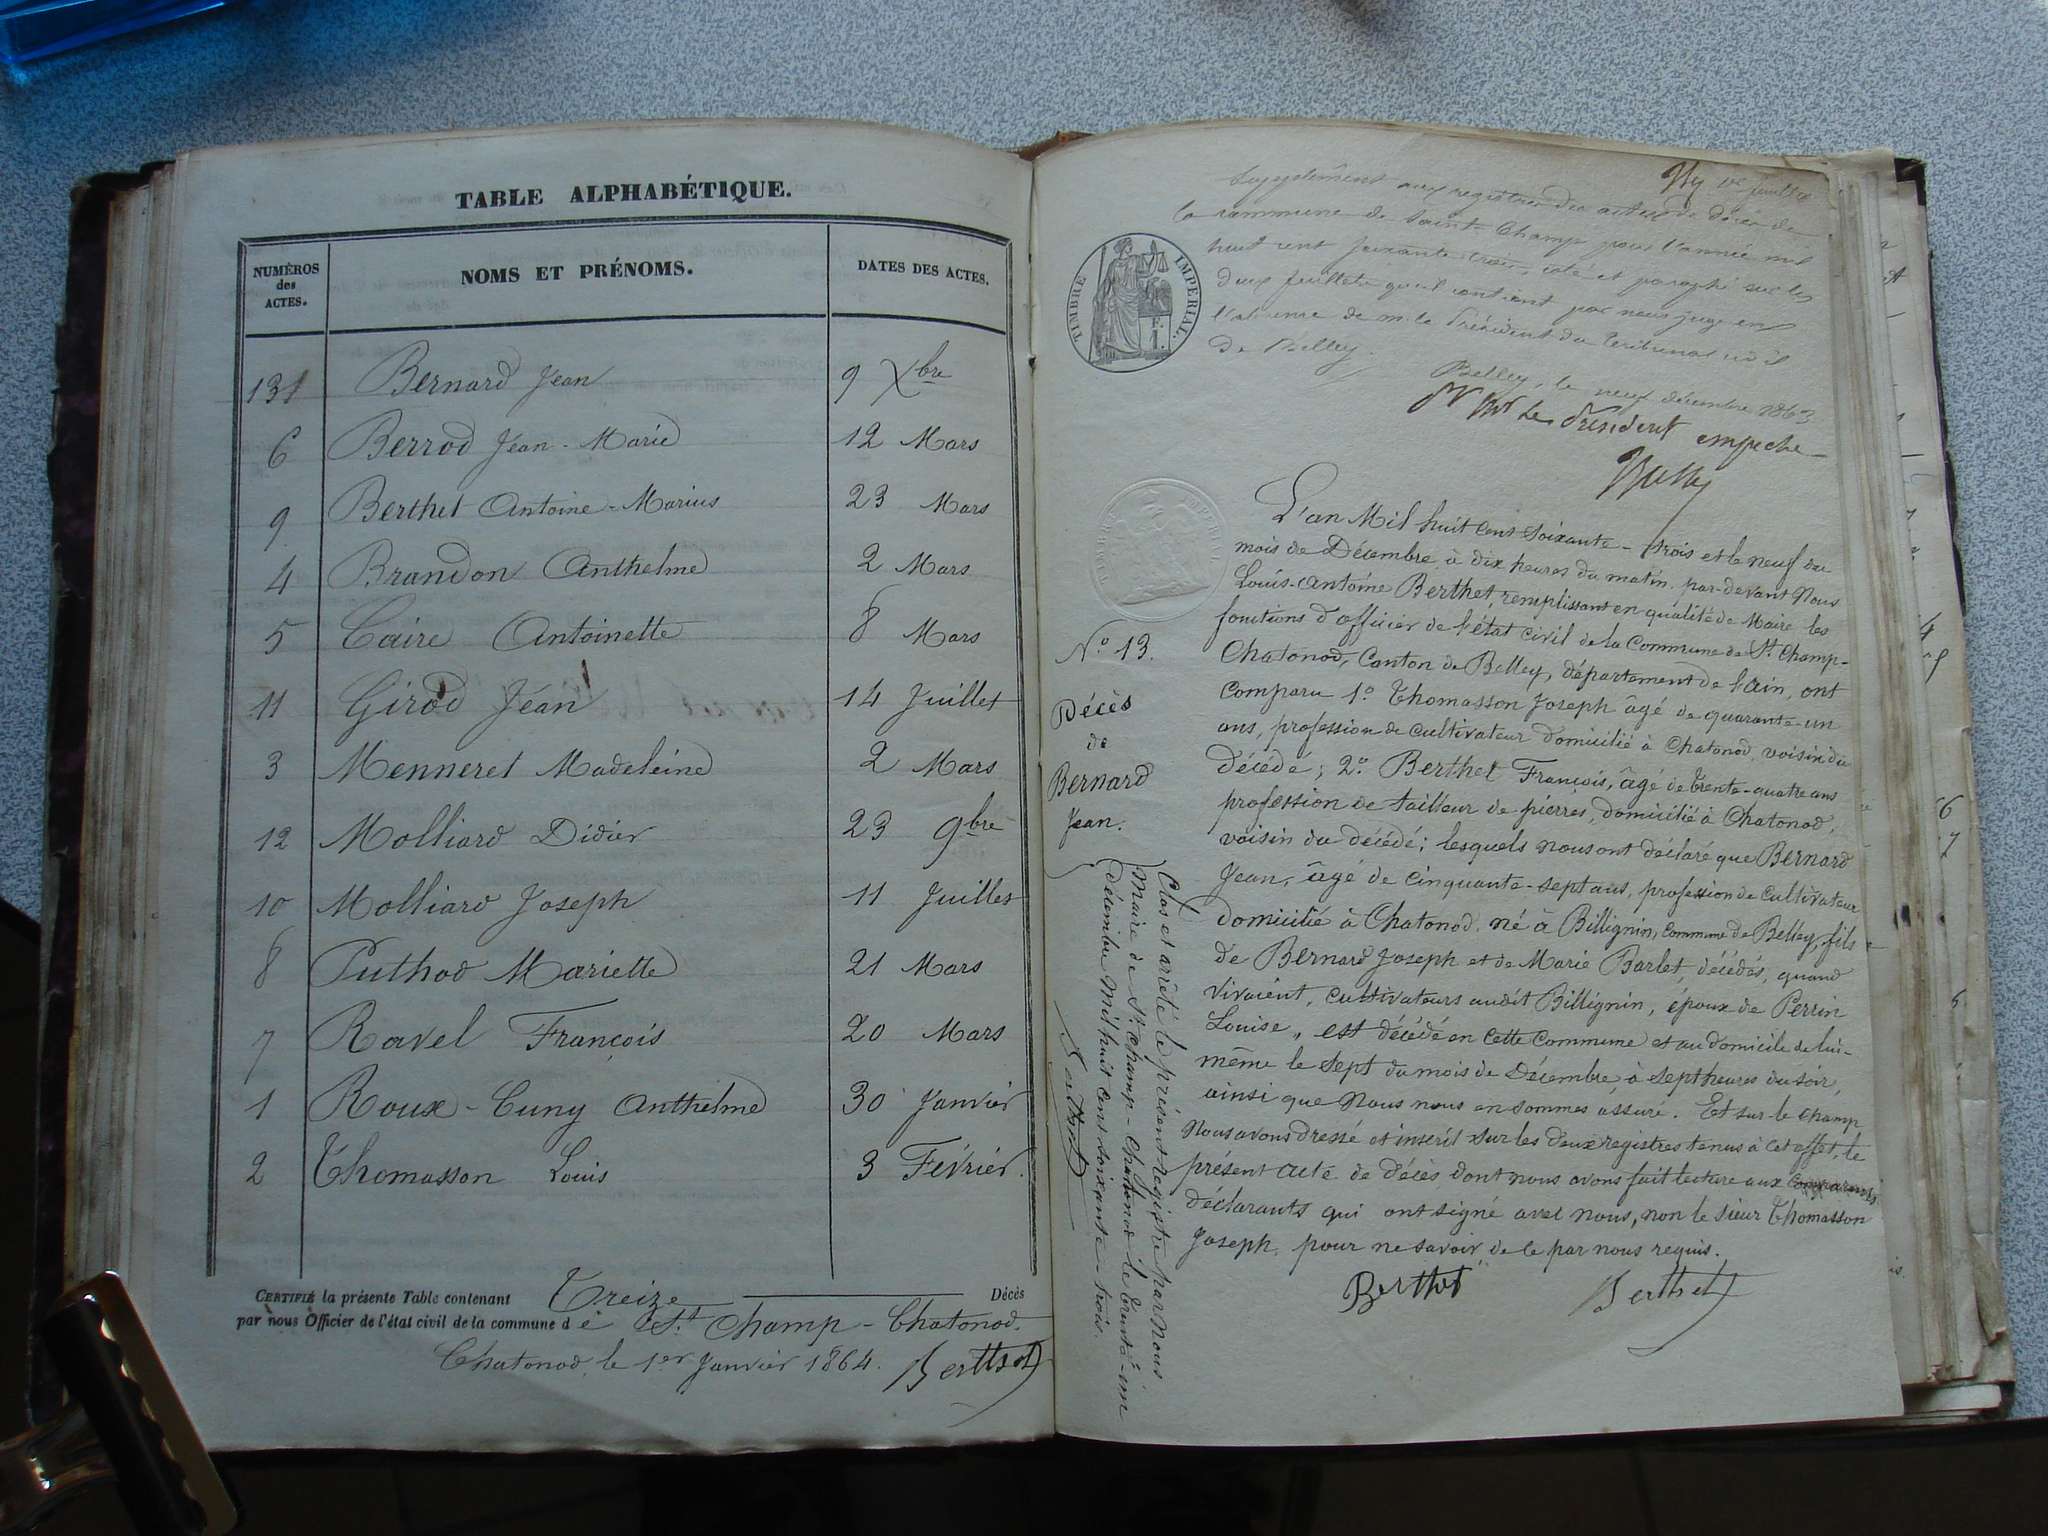 TABLE ALPHABÉTIQUE.
NUMÉROS des ACTES. NOMS ET PRÉNOMS. DATES DES ACTES.
131 Bernard Jean 9 Xbre
6 Berrod Jean-Marie 12 Mars
9 Berthet Antoine-Marius 23 Mars
4 Brandon Anthelme 2 Mars
5 Caire Antoinette 8 Mars
11 Girod Jean 14 Juillet
3 Menneret Madeleine 2 Mars
12 Molliard Didier 23 9bre
10 Molliard Joseph 11 Juillet
8 Puthod Mariette 21 Mars
7 Ravel François 20 Mars
1 Roux-Cuny Anthelme 30 Janvier
2 Thomasson Louis 3 Février.
CERTIFIÉ la présente Table contenant Treize Décès
par nous Officier de l'état civil de la commune de St Champ-Chatonod.
Chatonod, le 1er Janvier 1864. Berthet
1er feuillet
Supplément aux registres des actes de décès de
la commune de Saint Champ pour l'année mil
huit cent soixante trois, coté et paraphé sur les
deux feuillets qu'il contient par nous juge en
l'absence de m. le Président du Tribunal civil
de Belley.
Belley, le neuf décembre 1863
Pr Mr Le Président empeché
TIMBRE IMPERIAL.
L'an Mil huit cent soixante-trois et le neuf du
mois de Décembre, à dix heures du matin par-devant Nous
Louis-Antoine Berthet, remplissant en qualité de Maire les
fonctions d'officier de l'état civil de la Commune de St Champ-
Chatonod, Canton de Belley, département de l'Ain, ont
comparu 1º Thomasson Joseph âgé de quarante-un
ans, profession de cultivateur domicilié à Chatonod, voisin du
décédé; 2º Berthet François, âgé de trente-quatre ans
profession de tailleur de pierres, domicilié à Chatonod,
voisin du décédé; lesquels nous ont déclaré que Bernard
Jean, âgé de cinquante-sept ans, profession de cultivateur
domicilié à Chatonod, né à Billignin, commune de Belley, fils
de Bernard Joseph et de Marie Barlet, décédés, quand
vivaient, cultivateurs audit Billignin, époux de Perrin
Louise, est décédé en cette Commune et au domicile de lui-
même le sept du mois de Décembre, à sept heures du soir,
ainsi que Nous nous en sommes assuré. Et sur le champ
Nous avons dressé et inscrit sur les deux registres tenus à cet effet, le
présent acte de décès, dont nous avons fait lecture aux comparants
déclarants qui ont signé avec nous, non le sieur Thomasson
Joseph, pour ne savoir de le par nous requis.
Berthet Berthet
Nº 13.
Décès
de
Bernard
Jean.
Clos et arrêté le présent registre par nous
Maire de St Champ-Chatonod le trente-un
Décembre Mil huit cent soixante-trois.
Berthet